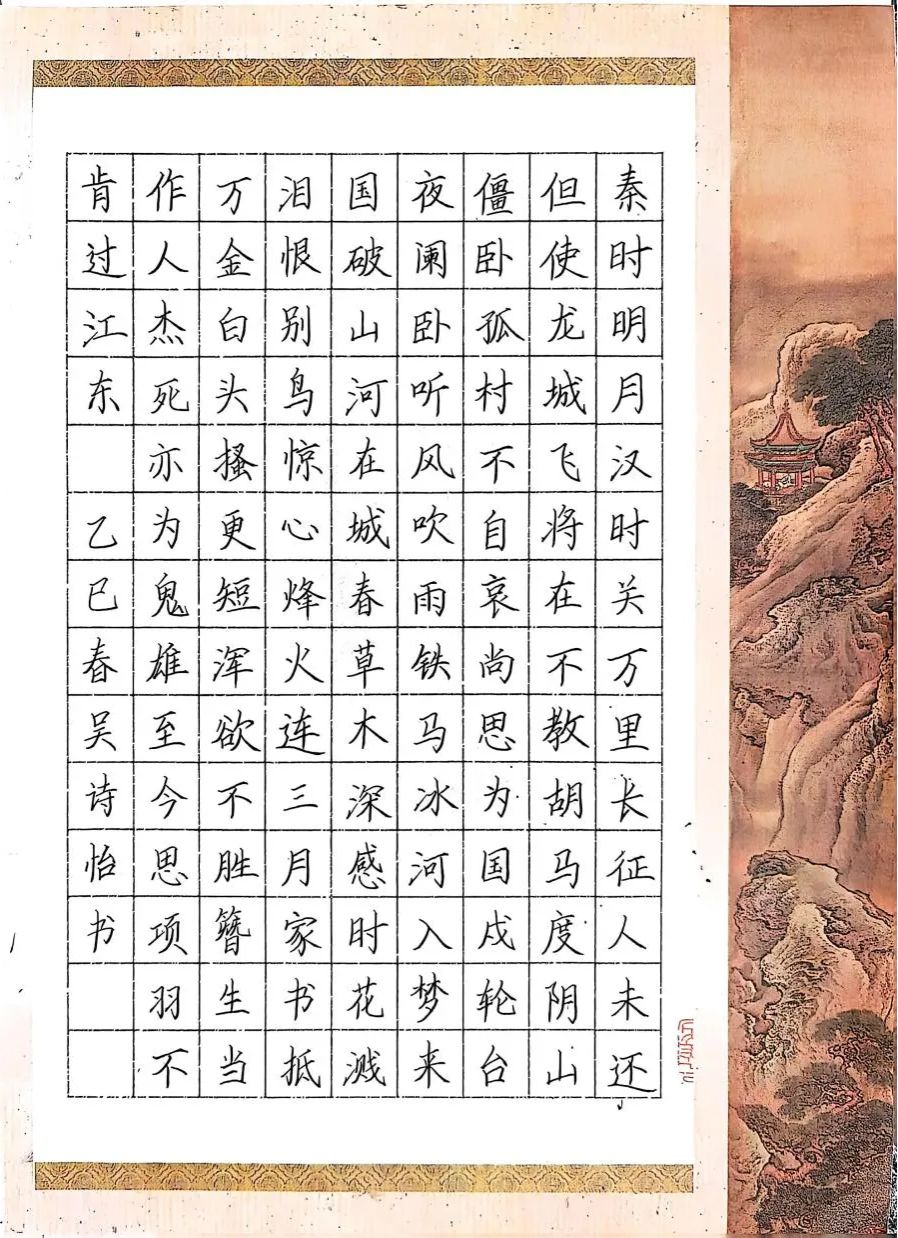 秦时明月汉时关万里长征人未还
但使龙城飞将在不教胡马度阴山
僵卧孤村不自哀尚思为国戍轮台
夜阑卧听风吹雨铁马冰河入梦来
国破山河在城春草木深感时花溅
泪恨别鸟惊心烽火连三月家书抵
万金白头搔更短浑欲不胜簪生当
作人杰死亦为鬼雄至今思项羽不
肯过江东 乙巳春吴诗怡书